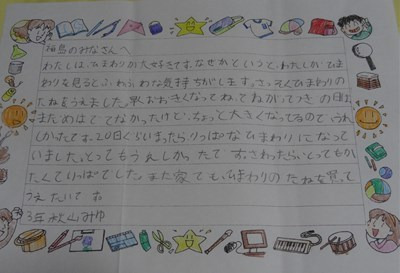 福島のみなさんへ
わたしは、ひまわりが大好きです。なぜかというと、わたしがひま
わりを見るとふわふわな気持ちがします。さっそくひまわりの
たねをうえました。早くおおきくなってね、とねがってつぎの日は
まだめはでてなかったけど、ちょっと大きくなってるので うれ
しかったです。20日くらいまったらりっぱなひまわりになって
いました。とってもうれしかったです。さわったら、とってもか
たくていっぱいでした。また家でも、ひまわりのたねを買って
うえたいです
3年 秋山みゆ